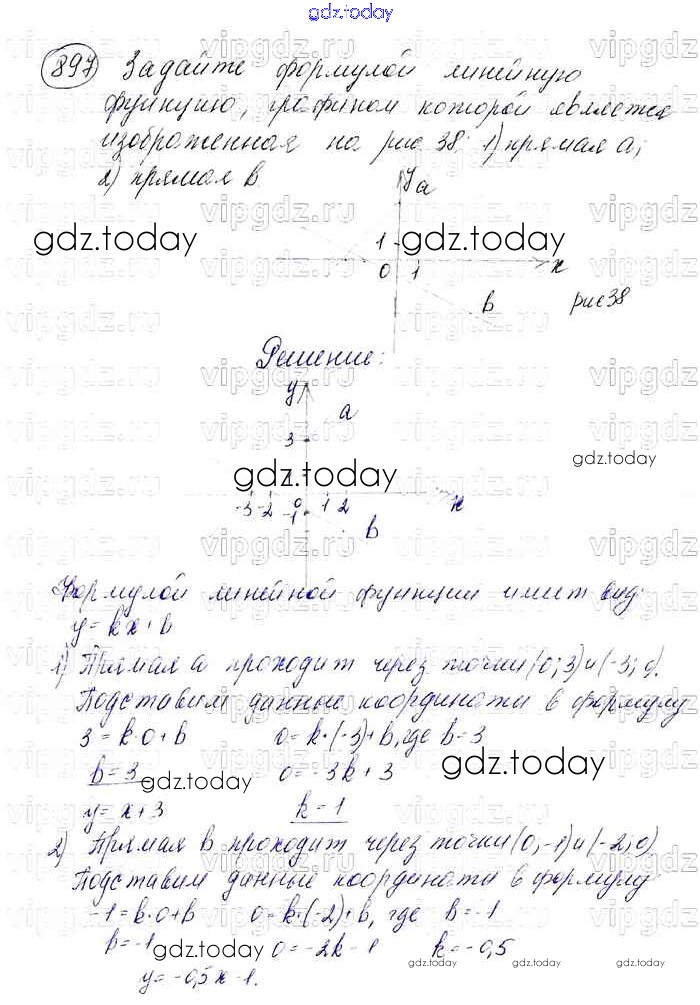 gdz.today
897 Задайте формулой линейную
функцию, графиком которой является
изображенная на рис 38: 1) прямая a;
2) прямая b.
y a
gdz.today gdz.today
1
0 1 x
b рис 38
Решение:
y
a
3
gdz.today gdz.today
-3 -2 0 1 2 x
-1
b
Формулой линейной функции имеет вид:
y = kx + b
1) Прямая a проходит через точки (0; 3) и (-3; 0).
Подставим данные координаты в формулу
3 = k·0 + b 0 = k·(-3) + b, где b = 3
b = 3 0 = -3k + 3
gdz.today gdz.today
y = x + 3 k = 1
2) Прямая b проходит через точки (0; -1) и (-2; 0)
Подставим данные координаты в формулу
-1 = k·0 + b 0 = k·(-2) + b, где b = -1
b = -1 0 = -2k - 1 k = -0,5
gdz.today gdz.today gdz.today
y = -0,5x - 1.